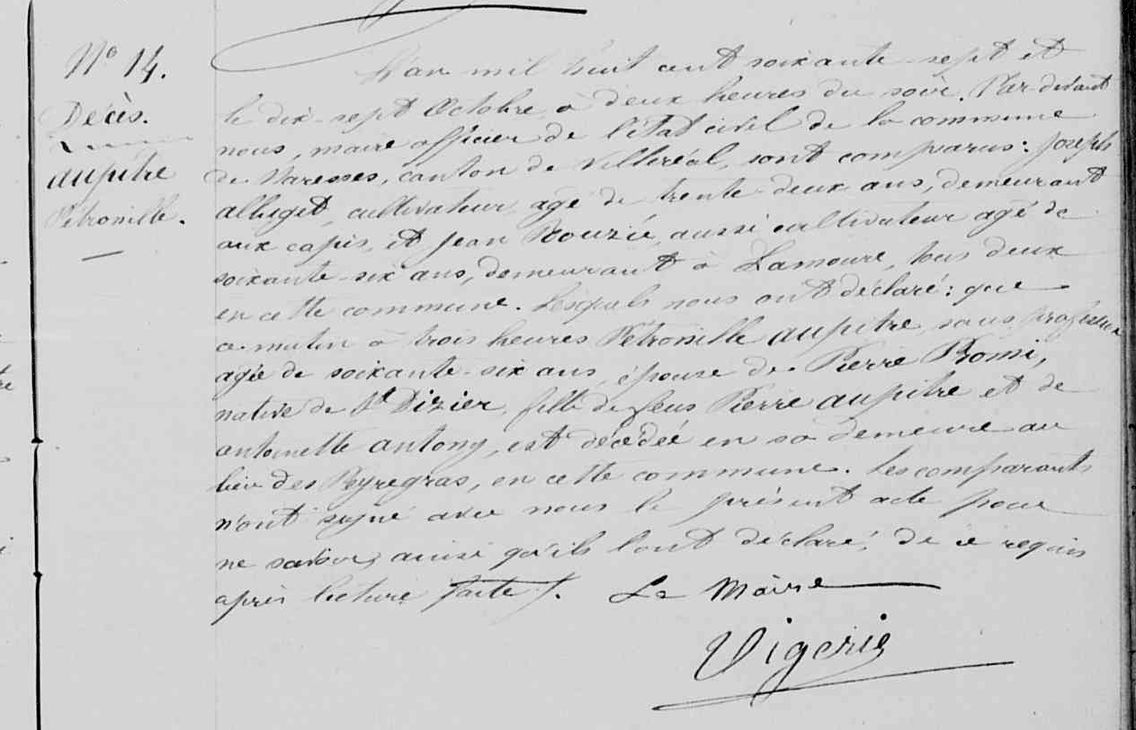 N° 14.
Décès.
aupitre
Pétronille.
L'an mil huit cent soixante-sept et
le dix-sept Octobre à deux heures du soir. Par-devant
nous, maire officier de l'état civil de la commune
de Naresses, canton de Villeréal, sont comparus: Joseph
alleget, cultivateur, agé de trente-deux ans, demeurant
aux capis, et Jean Rouzié, aussi cultivateur agé de
soixante-six ans, demeurant à Lamoure, tous deux
en cette commune. Lesquels nous ont déclaré: que
ce matin à trois heures Pétronille aupitre, sans profession
agée de soixante-six ans, épouse de Pierre Romi,
native de St Dizier, fille de feus Pierre aupitre et de
antoinette antony, est décédée en sa demeure au
lieu des Peyregras, en cette commune. Les comparants
n'ont signé avec nous le présent acte pour
ne savoir, ainsi qu'ils l'ont déclaré, de ce requis
après lecture faite. Le Maire
Vigerie